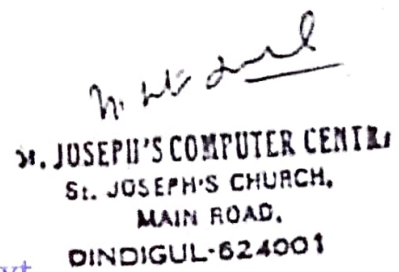 St. JOSEPH'S COMPUTER CENTRE
St. JOSEPH'S CHURCH,
MAIN ROAD,
DINDIGUL-624001